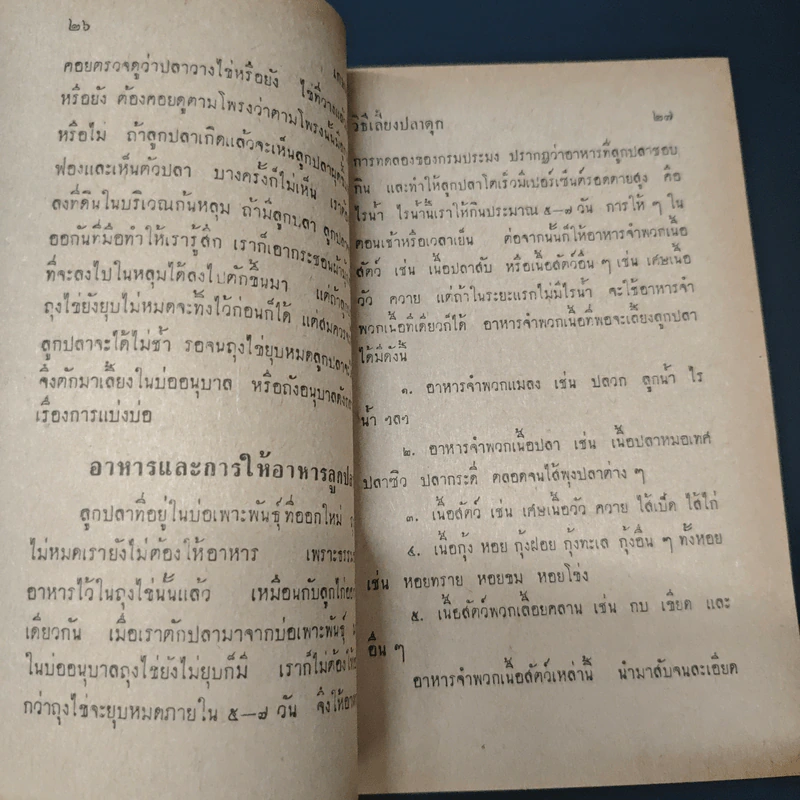 ๒๖
คอยตรวจดูว่าปลาวางไข่หรือยัง ไข่ที่วางแล้ว
หรือยัง ต้องคอยดูตามโพรงว่าตามโพรงนั้นมี
หรือไม่ ถ้าลูกปลาเกิดแล้วจะเห็นลูกปลาผุด
ฟองและเห็นตัวปลา บางครั้งก็ไม่เห็น เรา
ลงที่ดินในบริเวณก้นหลุม ถ้ามีลูกปลา ลูกปลา
ออกันที่มือทำให้เรารู้สึก เราก็เอากระชอน
ที่จะลงไปในหลุมได้ลงไปตักขึ้นมา แต่ถ้า
ถุงไข่ยังยุบไม่หมดจะทิ้งไว้ก่อนก็ได้ แต่
ลูกปลาจะได้ไม่ช้ำ รอจนถุงไข่ยุบหมดลูกปลา
จึงตักมาเลี้ยงในบ่ออนุบาล หรือถังอนุบาล
เรื่องการแบ่งบ่อ
อาหารและการให้อาหารลูกปลา
ลูกปลาที่อยู่ในบ่อเพาะพันธุ์ที่ออกใหม่
ไม่หมดเรายังไม่ต้องให้อาหาร เพราะ
อาหารไว้ในถุงไข่นั้นแล้ว เหมือนกับลูกไก่
เดียวกัน เมื่อเราตักปลามาจากบ่อเพาะพันธุ์
ในบ่ออนุบาลถุงไข่ยังไม่ยุบก็มี เราก็ไม่ต้องให้
กว่าถุงไข่จะยุบหมดภายใน ๕—๗ วัน จึงให้
วิธีเลี้ยงปลาดุก
๒๗
การทดลองของกรมประมง ปรากฏว่าอาหารที่ลูกปลาชอบ
กิน และทำให้ลูกปลาโตเร็วมีเปอร์เซ็นต์รอดตายสูง คือ
ไรน้ำ ไรน้ำนี้เราให้กินประมาณ ๕—๗ วัน การให้ ๆ ใน
ตอนเช้าหรือเวลาเย็น ต่อจากนั้นก็ให้อาหารจำพวกเนื้อ
สัตว์ เช่น เนื้อปลาสับ หรือเนื้อสัตว์อื่น ๆ เช่น เศษเนื้อ
วัว ควาย แต่ถ้าในระยะแรกไม่มีไรน้ำ จะใช้อาหารจำ
พวกเนื้อทีเดียวก็ได้ อาหารจำพวกเนื้อที่พอจะเลี้ยงลูกปลา
ได้มีดังนี้
๑. อาหารจำพวกแมลง เช่น ปลวก ลูกน้ำ ไร
น้ำ ฯลฯ
๒. อาหารจำพวกเนื้อปลา เช่น เนื้อปลาหมอเทศ
ปลาซิว ปลากระดี่ ตลอดจนไส้พุงปลาต่าง ๆ
๓. เนื้อสัตว์ เช่น เศษเนื้อวัว ควาย ไส้เป็ด ไส้ไก่
๔. เนื้อกุ้ง หอย กุ้งฝอย กุ้งทะเล กุ้งอื่น ๆ ทั้งหอย
เช่น หอยทราย หอยขม หอยโข่ง
๕. เนื้อสัตว์พวกเลื้อยคลาน เช่น กบ เขียด และ
อื่น ๆ
อาหารจำพวกเนื้อสัตว์เหล่านี้ นำมาสับจนละเอียด